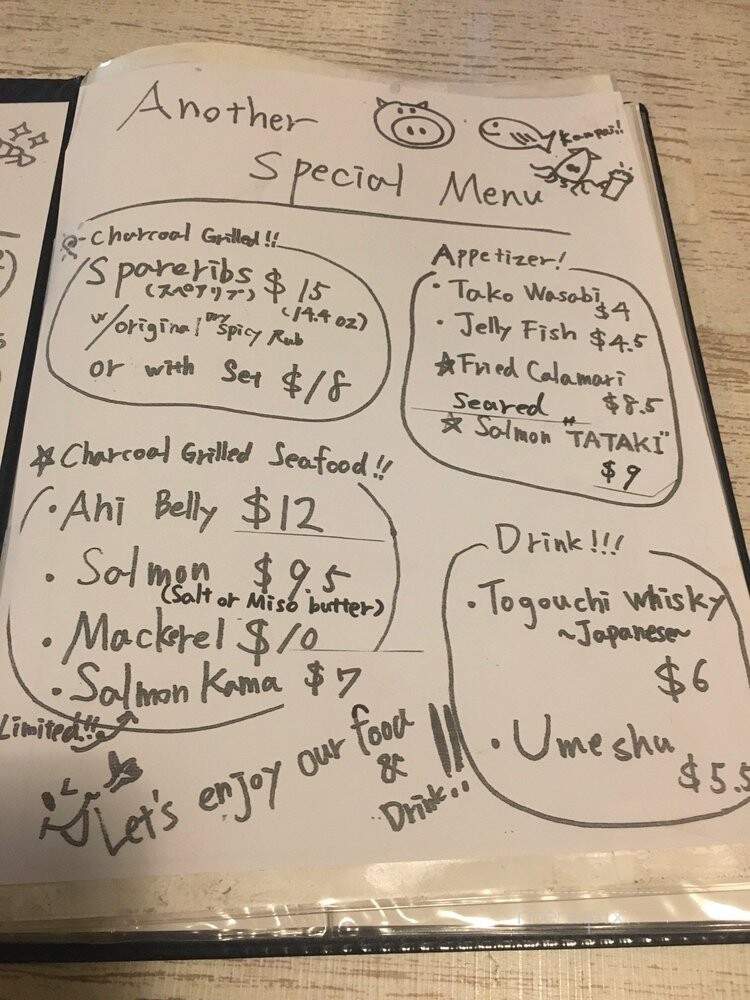 Another
Special Menu
Kanpai!!
Charcoal Grilled!!
Spareribs $15
(スペアリブ) (14.4oz)
w/original Dry Spicy Rub
or with Set $18
Appetizer!
・Tako Wasabi
$4
・Jelly Fish $4.5
☆Fried Calamari
$8.5
Seared
☆Salmon "TATAKI"
$9
☆Charcoal Grilled Seafood!!
・Ahi Belly $12
・Salmon $9.5
(Salt or Miso butter)
・Mackerel $10
・Salmon Kama $7
Limited!!
Drink!!!
・Togouchi Whisky
~Japanese~
$6
・Umeshu
$5.5
Let's enjoy our food
&
Drink!!